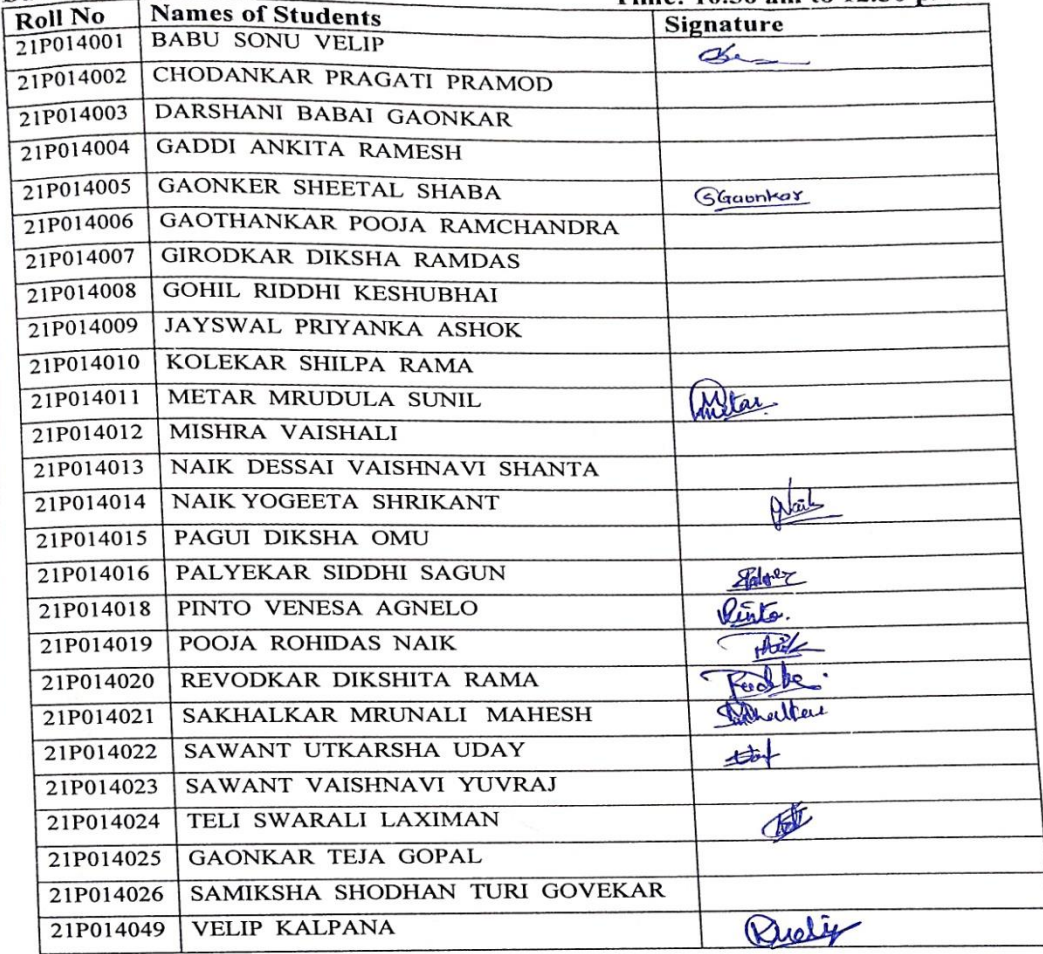 Time: 10:30 am to 12:30 p
Roll No Names of Students Signature
21P014001 BABU SONU VELIP
21P014002 CHODANKAR PRAGATI PRAMOD
21P014003 DARSHANI BABAI GAONKAR
21P014004 GADDI ANKITA RAMESH
21P014005 GAONKER SHEETAL SHABA SGaonkar
21P014006 GAOTHANKAR POOJA RAMCHANDRA
21P014007 GIRODKAR DIKSHA RAMDAS
21P014008 GOHIL RIDDHI KESHUBHAI
21P014009 JAYSWAL PRIYANKA ASHOK
21P014010 KOLEKAR SHILPA RAMA
21P014011 METAR MRUDULA SUNIL Metar
21P014012 MISHRA VAISHALI
21P014013 NAIK DESSAI VAISHNAVI SHANTA
21P014014 NAIK YOGEETA SHRIKANT Naik
21P014015 PAGUI DIKSHA OMU
21P014016 PALYEKAR SIDDHI SAGUN
21P014018 PINTO VENESA AGNELO Pinto.
21P014019 POOJA ROHIDAS NAIK
21P014020 REVODKAR DIKSHITA RAMA
21P014021 SAKHALKAR MRUNALI MAHESH
21P014022 SAWANT UTKARSHA UDAY
21P014023 SAWANT VAISHNAVI YUVRAJ
21P014024 TELI SWARALI LAXIMAN
21P014025 GAONKAR TEJA GOPAL
21P014026 SAMIKSHA SHODHAN TURI GOVEKAR
21P014049 VELIP KALPANA